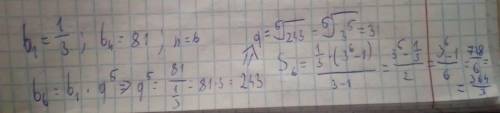 b₁ = 1/3; b₆ = 81; n = 6
b₆ = b₁ · q⁵ ⇒ q⁵ = 81/(1/3) = 81·3 = 243 ⇒ q = ⁵√243 = ⁵√3⁵ = 3
S₆ = (1/3 · (3⁶ - 1))/(3 - 1) = (3⁵ - 1/3)/2 = (3⁶ - 1)/6 = 728/6 =
= 364/3